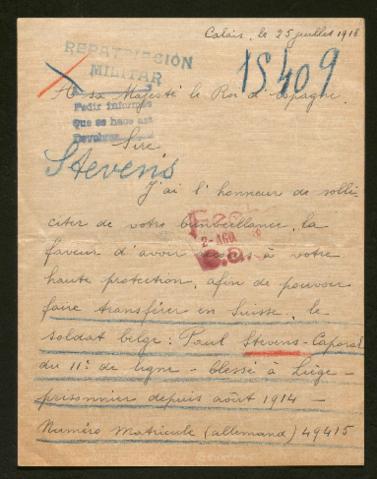 Calais, le 25 juillet 1918
REPATRIACIÓN
MILITAR
15409
A sa Majesté le Roi d'Espagne.
Pedir informes
Que se hace así
Sire
Stevens
J'ai l'honneur de solli-
citer de votre bienveillance, la
2-AGO
faveur d'avoir à votre
haute protection, afin de pouvoir
faire transférer en Suisse, le
soldat belge: Paul Stevens-Caporal
du 11e de ligne - blessé à Liège -
prisonnier depuis août 1914 -
Numéro Matricule (allemand) 49415